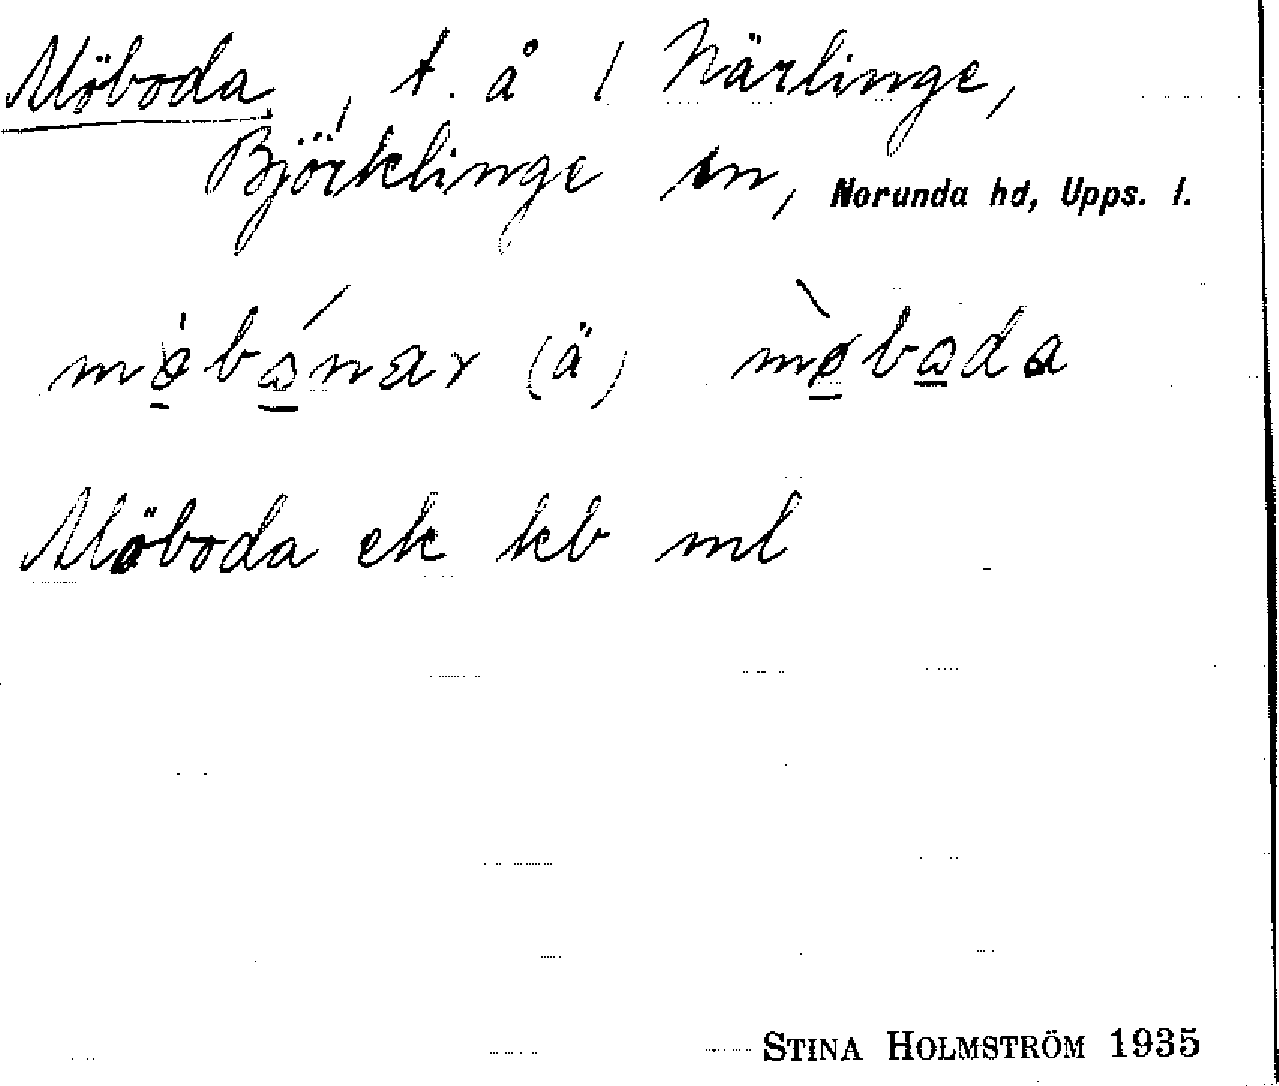 Möboda, t. å / Närlinge,
Björklinge sn, Norunda hd, Upps. l.
(ä)
Möboda ek kb ml
STINA HOLMSTRÖM 1935